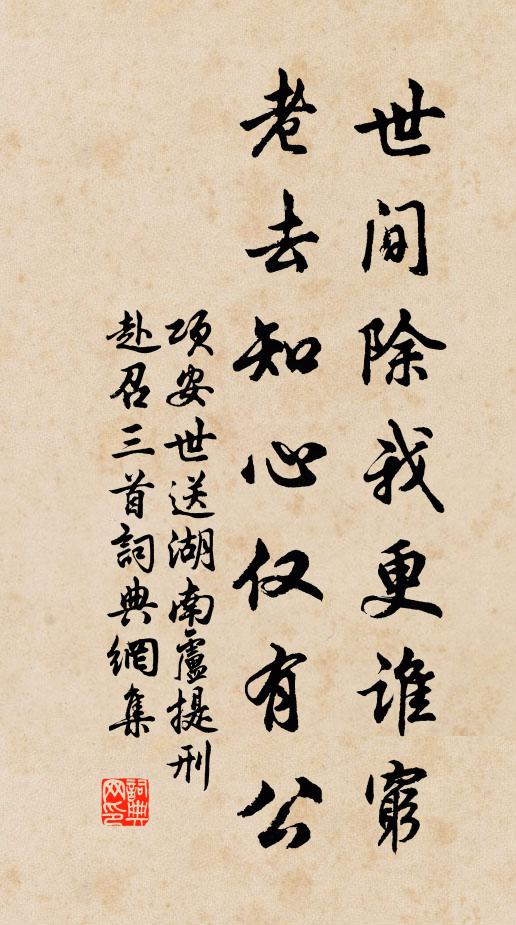 世间除我更谁窮
老去知心仅有公
项安世送湖南盧提刑
赴召三首詞典網集
詞典网印